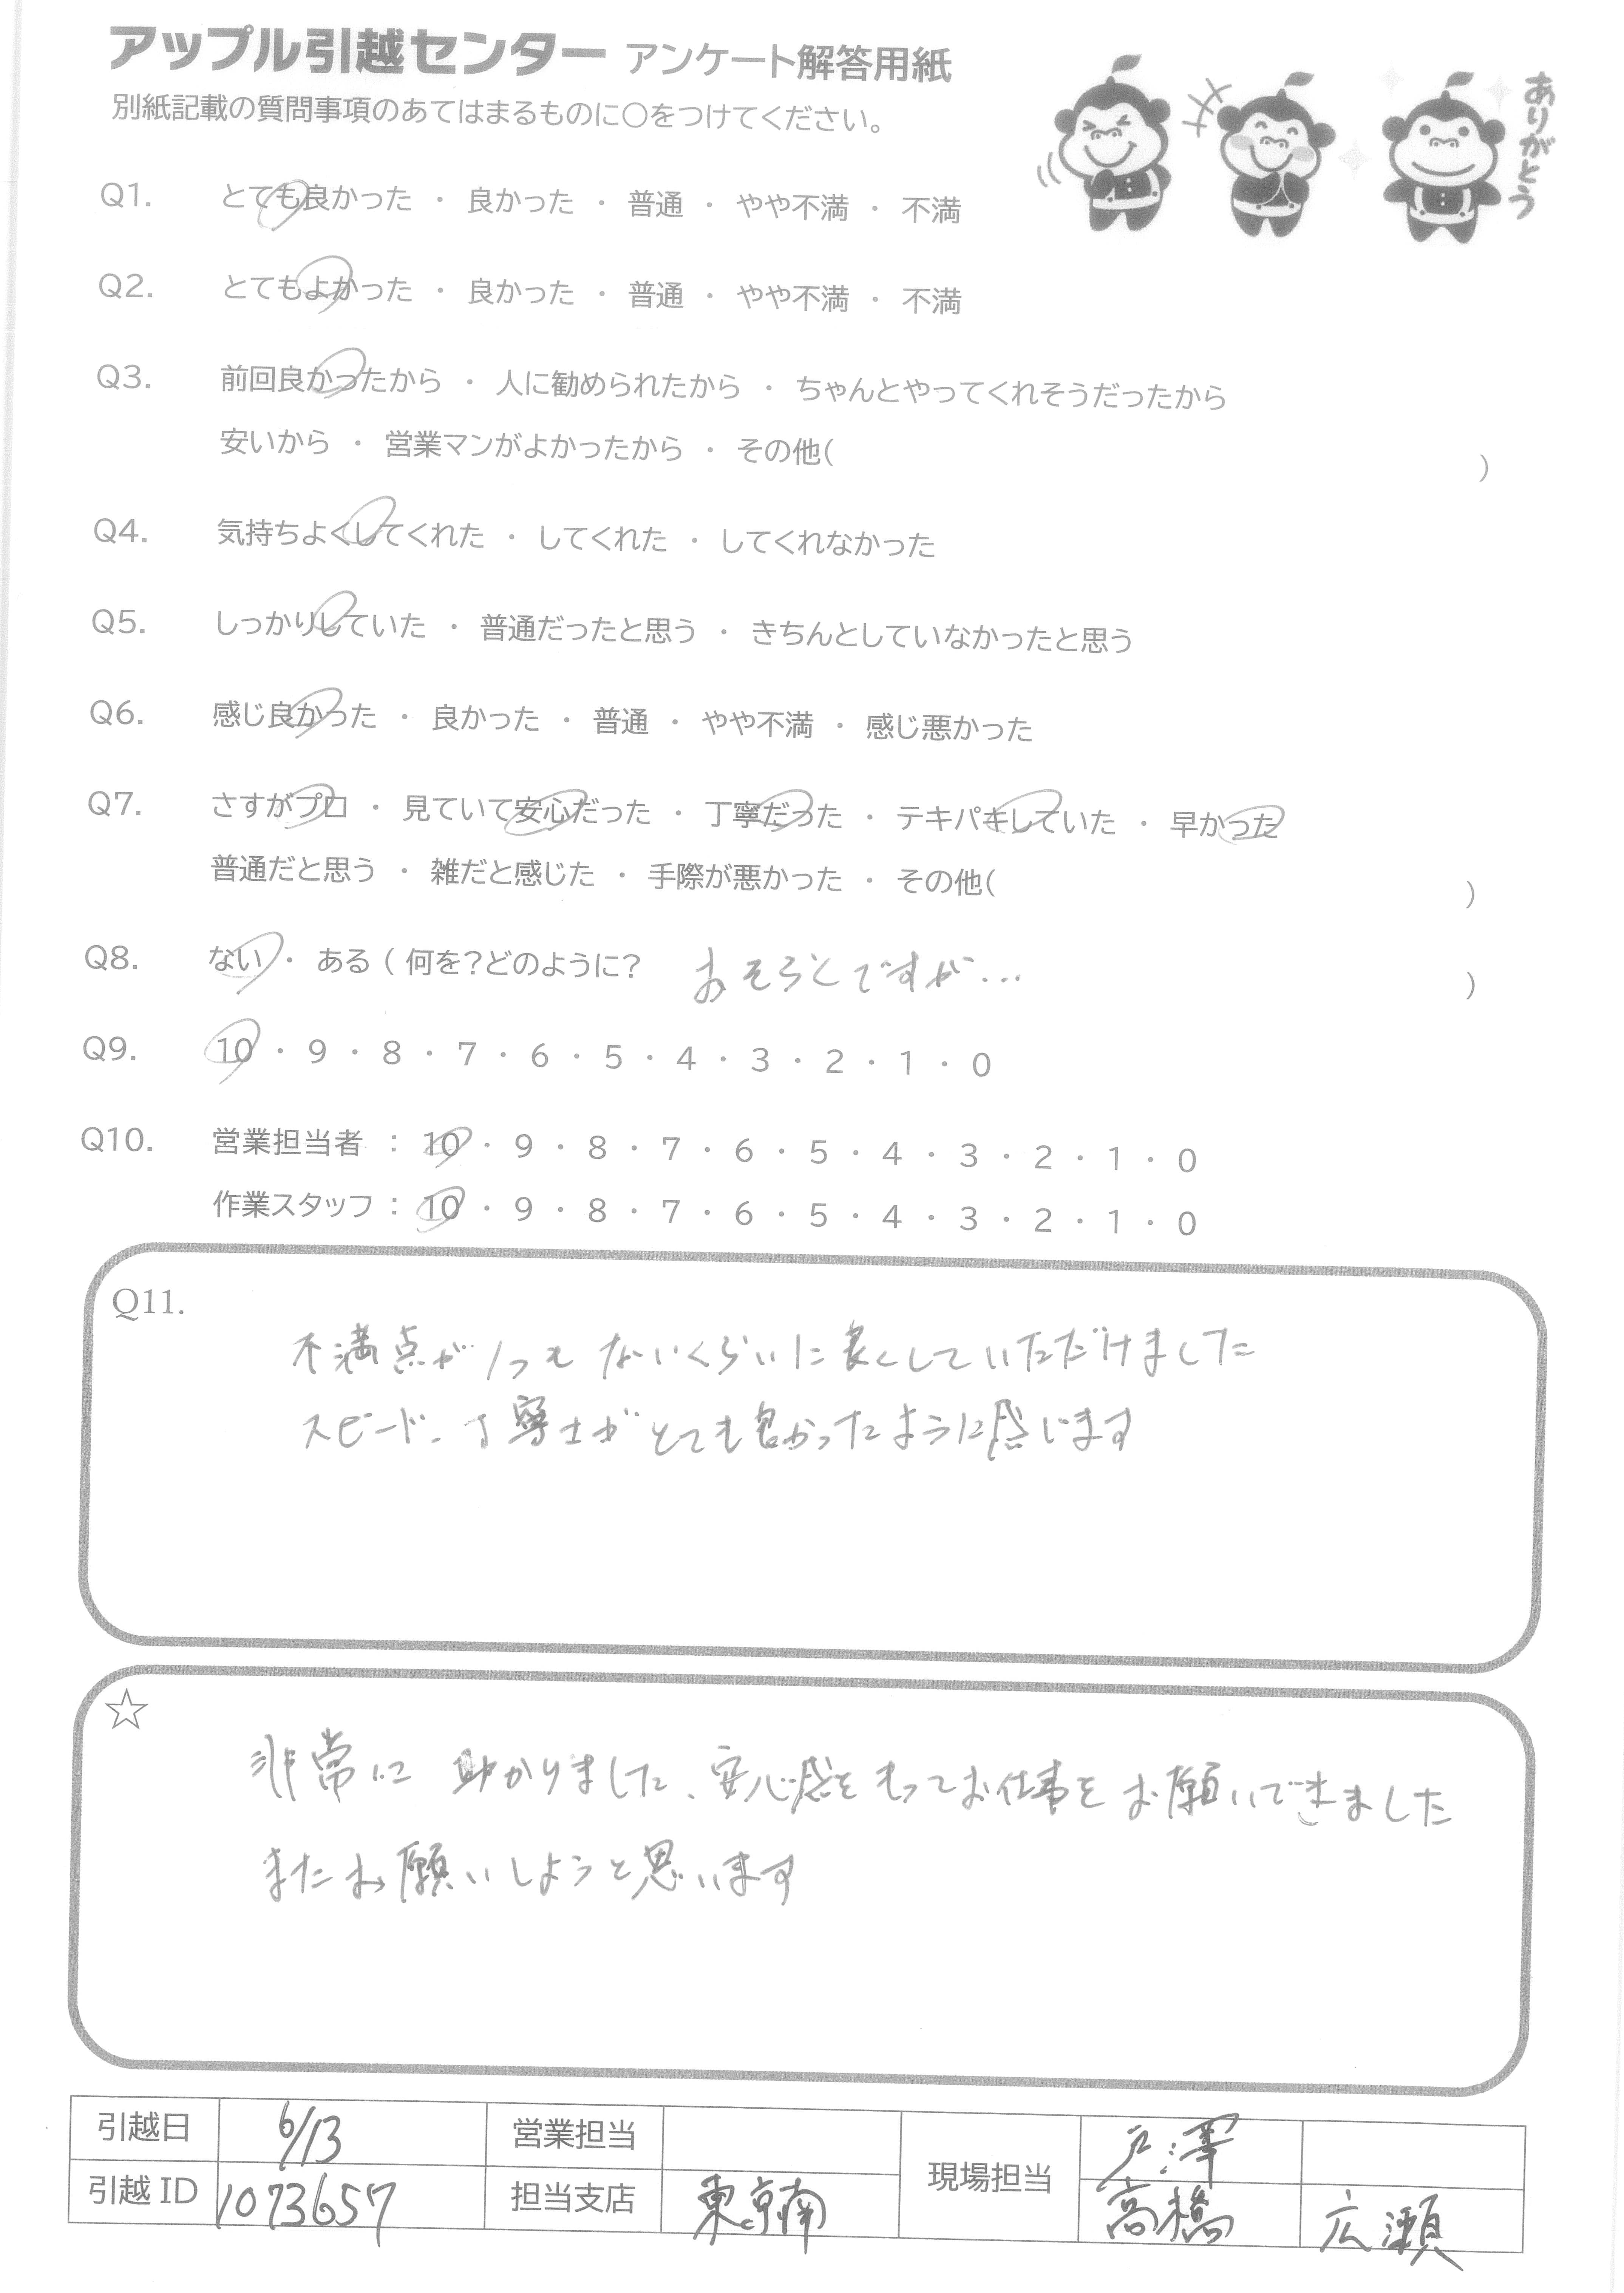 アップル引越センター アンケート解答用紙
別紙記載の質問事項のあてはまるものに○をつけてください。
ありがとう
Q1. とても良かった ・ 良かった ・ 普通 ・ やや不満 ・ 不満
Q2. とてもよかった ・ 良かった ・ 普通 ・ やや不満 ・ 不満
Q3. 前回良かったから ・ 人に勧められたから ・ ちゃんとやってくれそうだったから
安いから ・ 営業マンがよかったから ・ その他( )
Q4. 気持ちよくしてくれた ・ してくれた ・ してくれなかった
Q5. しっかりしていた ・ 普通だったと思う ・ きちんとしていなかったと思う
Q6. 感じ良かった ・ 良かった ・ 普通 ・ やや不満 ・ 感じ悪かった
Q7. さすがプロ ・ 見ていて安心だった ・ 丁寧だった ・ テキパキしていた ・ 早かった
普通だと思う ・ 雑だと感じた ・ 手際が悪かった ・ その他( )
Q8. ない ・ ある ( 何を?どのように? おそらくですが… )
Q9. 10 ・ 9 ・ 8 ・ 7 ・ 6 ・ 5 ・ 4 ・ 3 ・ 2 ・ 1 ・ 0
Q10. 営業担当者 : 10 ・ 9 ・ 8 ・ 7 ・ 6 ・ 5 ・ 4 ・ 3 ・ 2 ・ 1 ・ 0
作業スタッフ : 10 ・ 9 ・ 8 ・ 7 ・ 6 ・ 5 ・ 4 ・ 3 ・ 2 ・ 1 ・ 0
Q11.
不満点が1つもないくらいに良くしていただけました
スピード、丁寧さがとても良かったように感じます
☆
非常に助かりました、安心感をもってお仕事をお願いできました
またお願いしようと思います
引越日 6/13 営業担当 現場担当 戸澤
引越ID 1073657 担当支店 東京南 高橋 広瀬